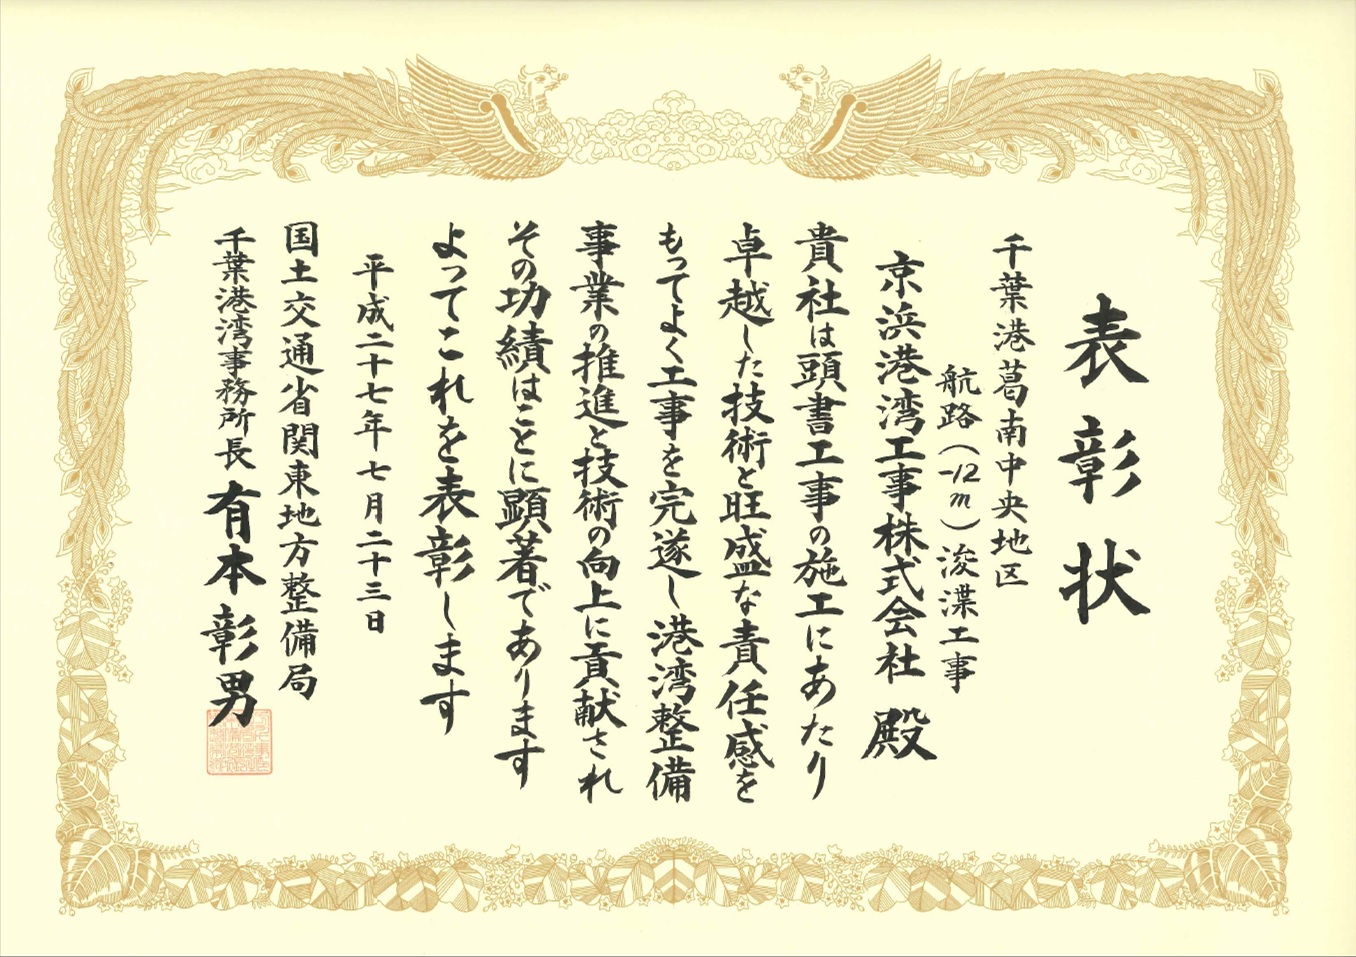 表彰状
千葉港葛南中央地区
航路(-12m)浚渫工事
京浜港湾工事株式会社 殿
貴社は頭書工事の施工にあたり
卓越した技術と旺盛な責任感を
もってよく工事を完遂し港湾整備
事業の推進と技術の向上に貢献され
その功績はことに顕著であります
よってこれを表彰します
平成二十七年七月二十三日
国土交通省関東地方整備局
千葉港湾事務所長 有本彰男